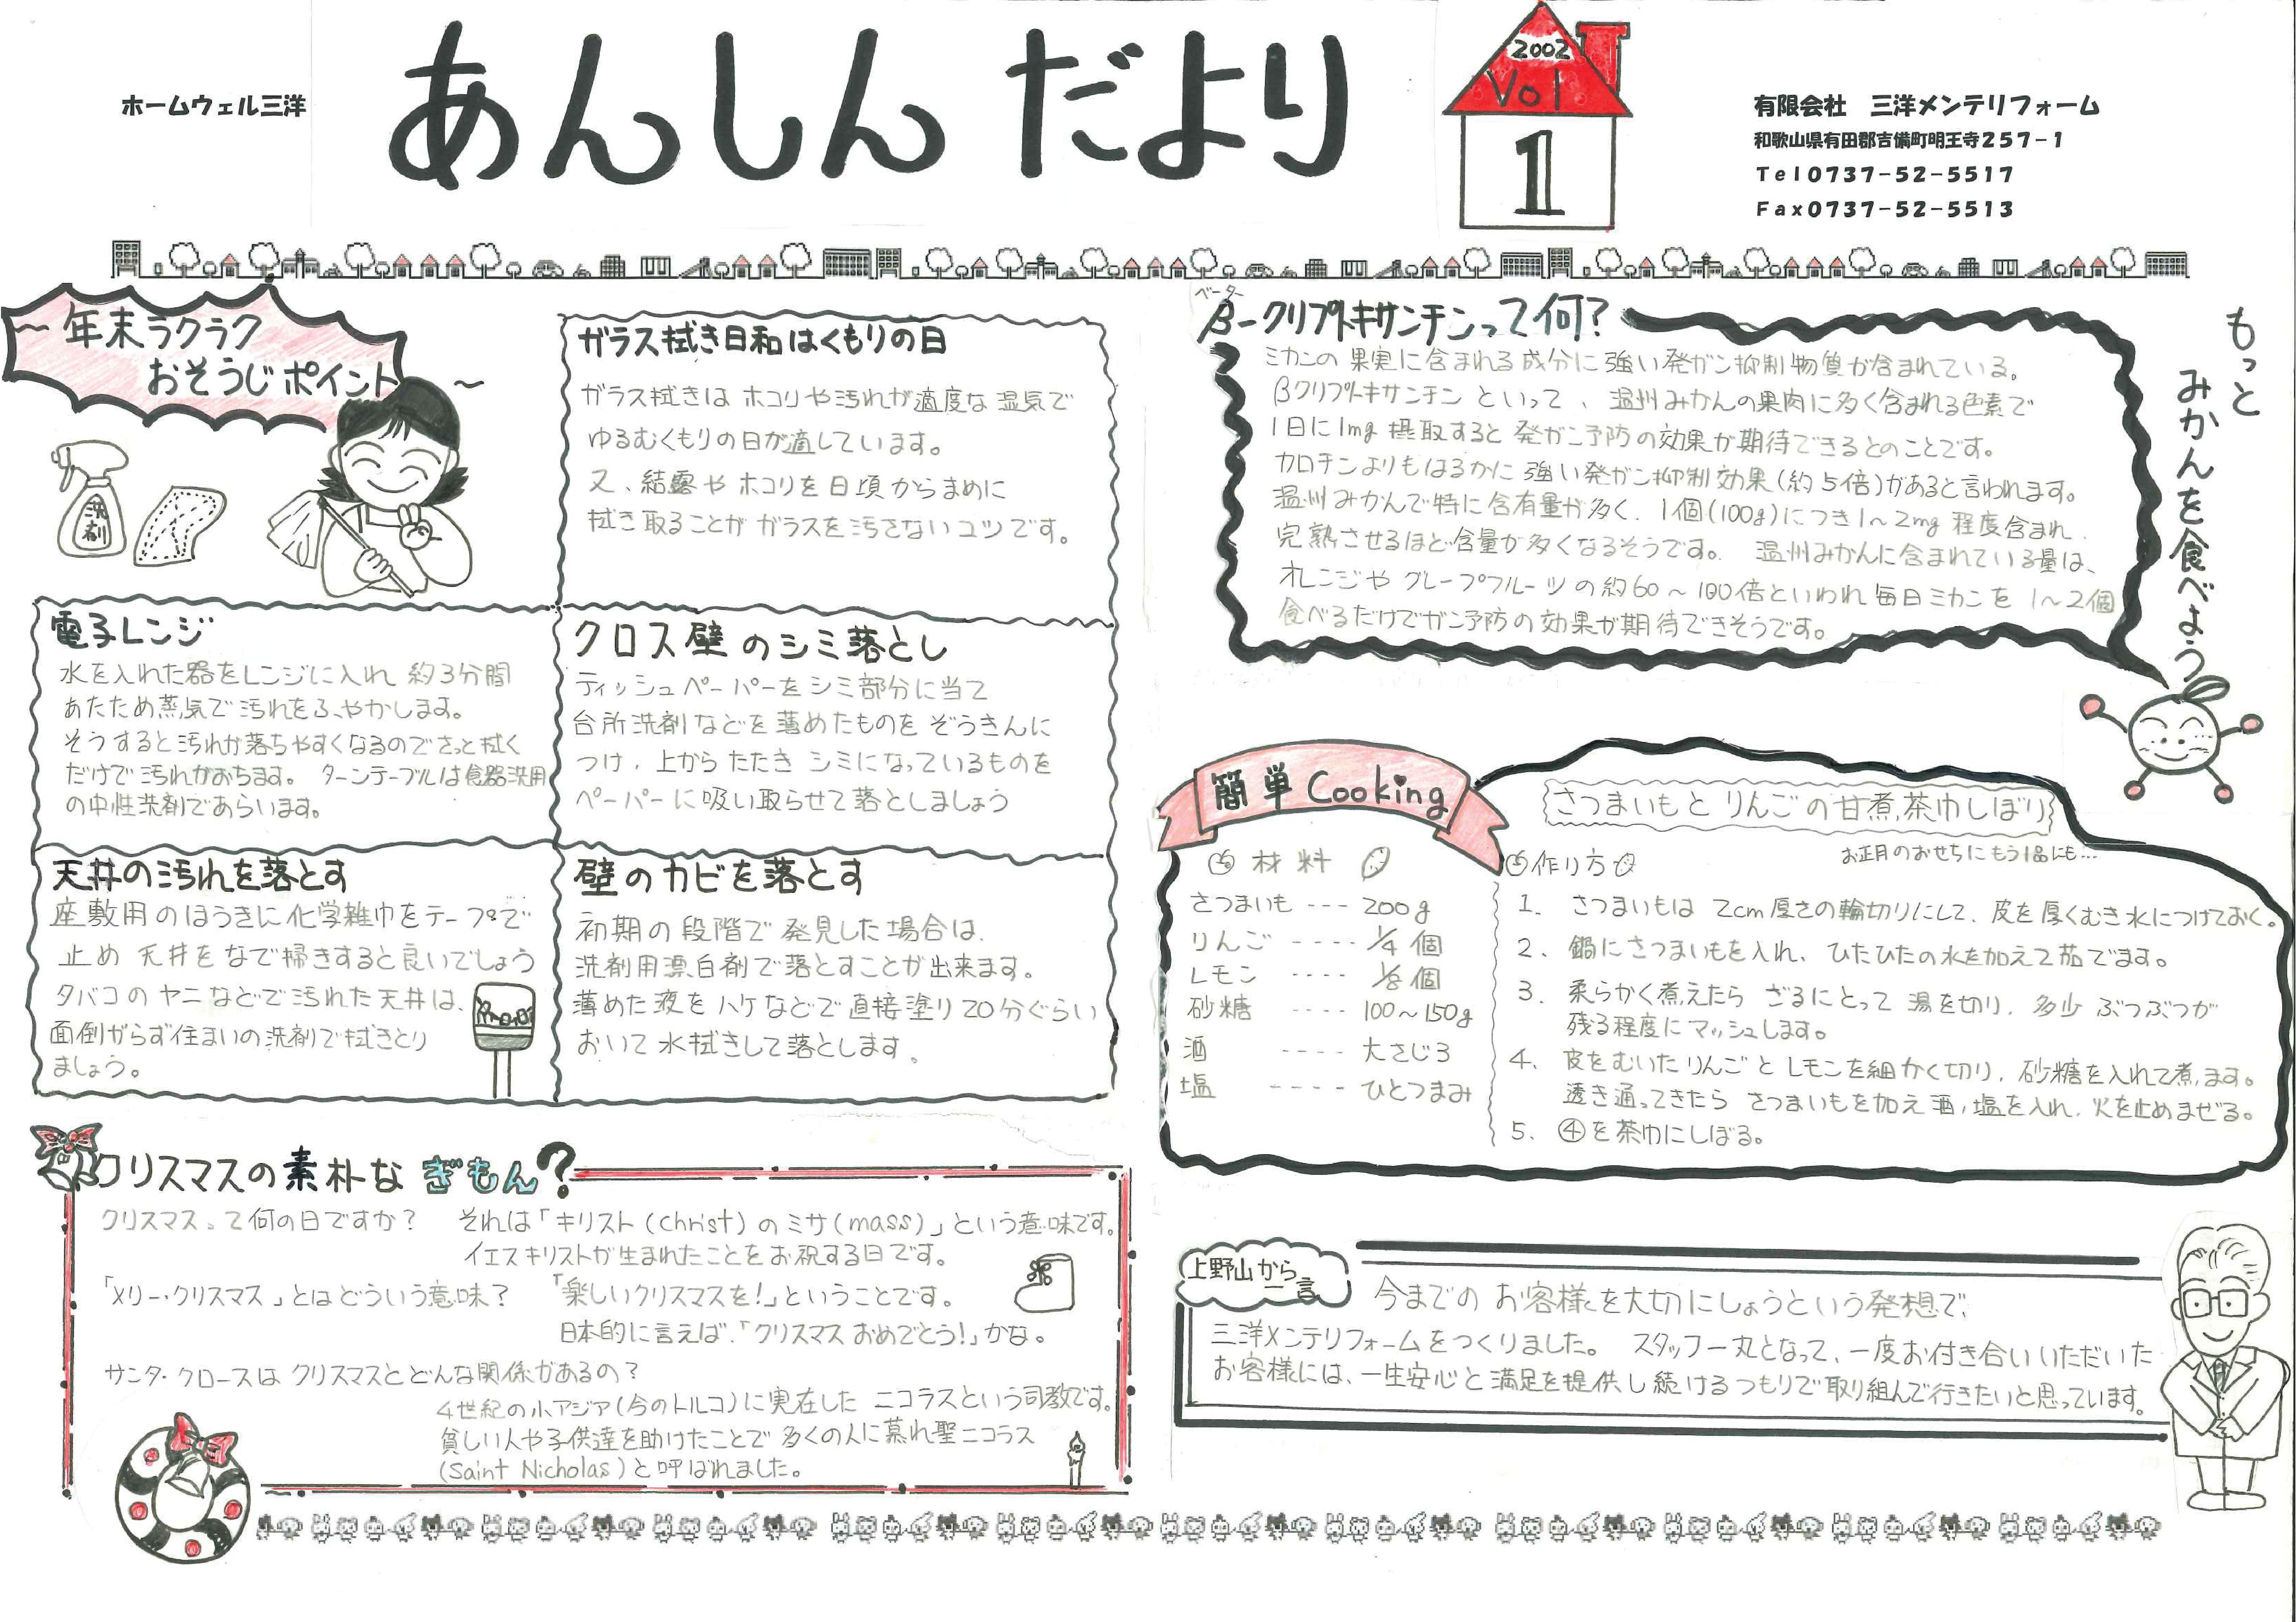 ホームウェル三洋
あんしんだより
2002
Vol
1
有限会社 三洋メンテリフォーム
和歌山県有田郡吉備町明王寺257-1
Tel0737-52-5517
Fax0737-52-5513
～年末ラクラク
おそうじポイント～
洗剤
ガラス拭き日和はくもりの日
ガラス拭きは ホコリや汚れが適度な湿気で
ゆるむくもりの日が適しています。
又、結露や ホコリを日頃からまめに
拭き取ることが ガラスを汚さないコツです。
電子レンジ
水を入れた器をレンジに入れ 約3分間
あたため蒸気で汚れをふやかします。
そうすると汚れが落ちやすくなるのでさっと拭く
だけで汚れがおちます。 ターンテーブルは食器洗用
の中性洗剤であらいます。
クロス壁のシミ落とし
ティッシュペーパーをシミ部分に当て
台所洗剤などを薄めたものを ぞうきんに
つけ、上から たたき シミになっているものを
ペーパーに吸い取らせて落としましょう
天井の汚れを落とす
座敷用のほうきに化学雑巾をテープで
止め 天井をなで掃きすると良いでしょう
タバコのヤニなどで汚れた天井は、
面倒がらず住まいの洗剤で拭きとり
ましょう。
壁のカビを落とす
初期の段階で発見した場合は、
洗剤用漂白剤で落とすことが出来ます。
薄めた液をハケなどで直接塗り20分ぐらい
おいて水拭きして落とします。
クリスマスの素朴なぎもん？
クリスマスって何の日ですか？ それは「キリスト(Christ)のミサ(mass)」という意味です。
イエスキリストが生まれたことをお祝する日です。
「メリー・クリスマス」とはどういう意味？ 「楽しいクリスマスを！」ということです。
日本的に言えば、「クリスマスおめでとう！」かな。
サンタ・クロースは クリスマスとどんな関係があるの？
4世紀の小アジア(今のトルコ)に実在した ニコラスという司教です。
貧しい人や子供達を助けたことで 多くの人に慕れ聖ニコラス
(Saint Nicholas)と呼ばれました。
ベーター
β-クリプトキサンチンって何?
ミカンの果実に含まれる成分に強い発ガン抑制物質が含まれている。
βクリプトキサンチン といって、温州みかんの果肉に多く含まれる色素で
1日に1mg 摂取すると 発ガン予防の効果が期待できるとのことです。
カロチンよりもはるかに 強い発ガン抑制効果(約5倍)があると言われます。
温州みかんで特に含有量が多く、1個(100g)につき1～2mg 程度含まれ、
完熟させるほど含量が多くなるそうです。 温州みかんに含まれている量は、
オレンジや グレープフルーツの約60～100倍といわれ毎日ミカンを 1～2個
食べるだけでガン予防の効果が期待できそうです。
もっと
みかんを食べよう
簡単Cooking
さつまいもと りんごの甘煮、茶巾しぼり
お正月のおせちにもう1品にも…
材料
さつまいも --- 200g
りんご ---- 1/4個
レモン ---- 1/8個
砂糖 ---- 100～150g
酒 ---- 大さじ3
塩 ----- ひとつまみ
作り方
1. さつまいもは 2cm厚さの輪切りにして、皮を厚くむき水につけておく。
2. 鍋にさつまいもを入れ、ひたひたの水を加えて茹でます。
3. 柔らかく煮えたら ざるにとって 湯を切り、多少 ぶつぶつが
残る程度にマッシュします。
4. 皮をむいたりんごと レモンを細かく切り、砂糖を入れて煮ます。
透き通ってきたら さつまいもを加え 酒、塩を入れ、火を止めまぜる。
5. ④を茶巾にしぼる。
上野山から一言
今までの お客様を大切にしょうという発想で、
三洋メンテリフォームをつくりました。 スタッフ一丸となって、一度お付き合いいただいた
お客様には、一生安心と満足を提供し続けるつもりで取り組んで行きたいと思っています。